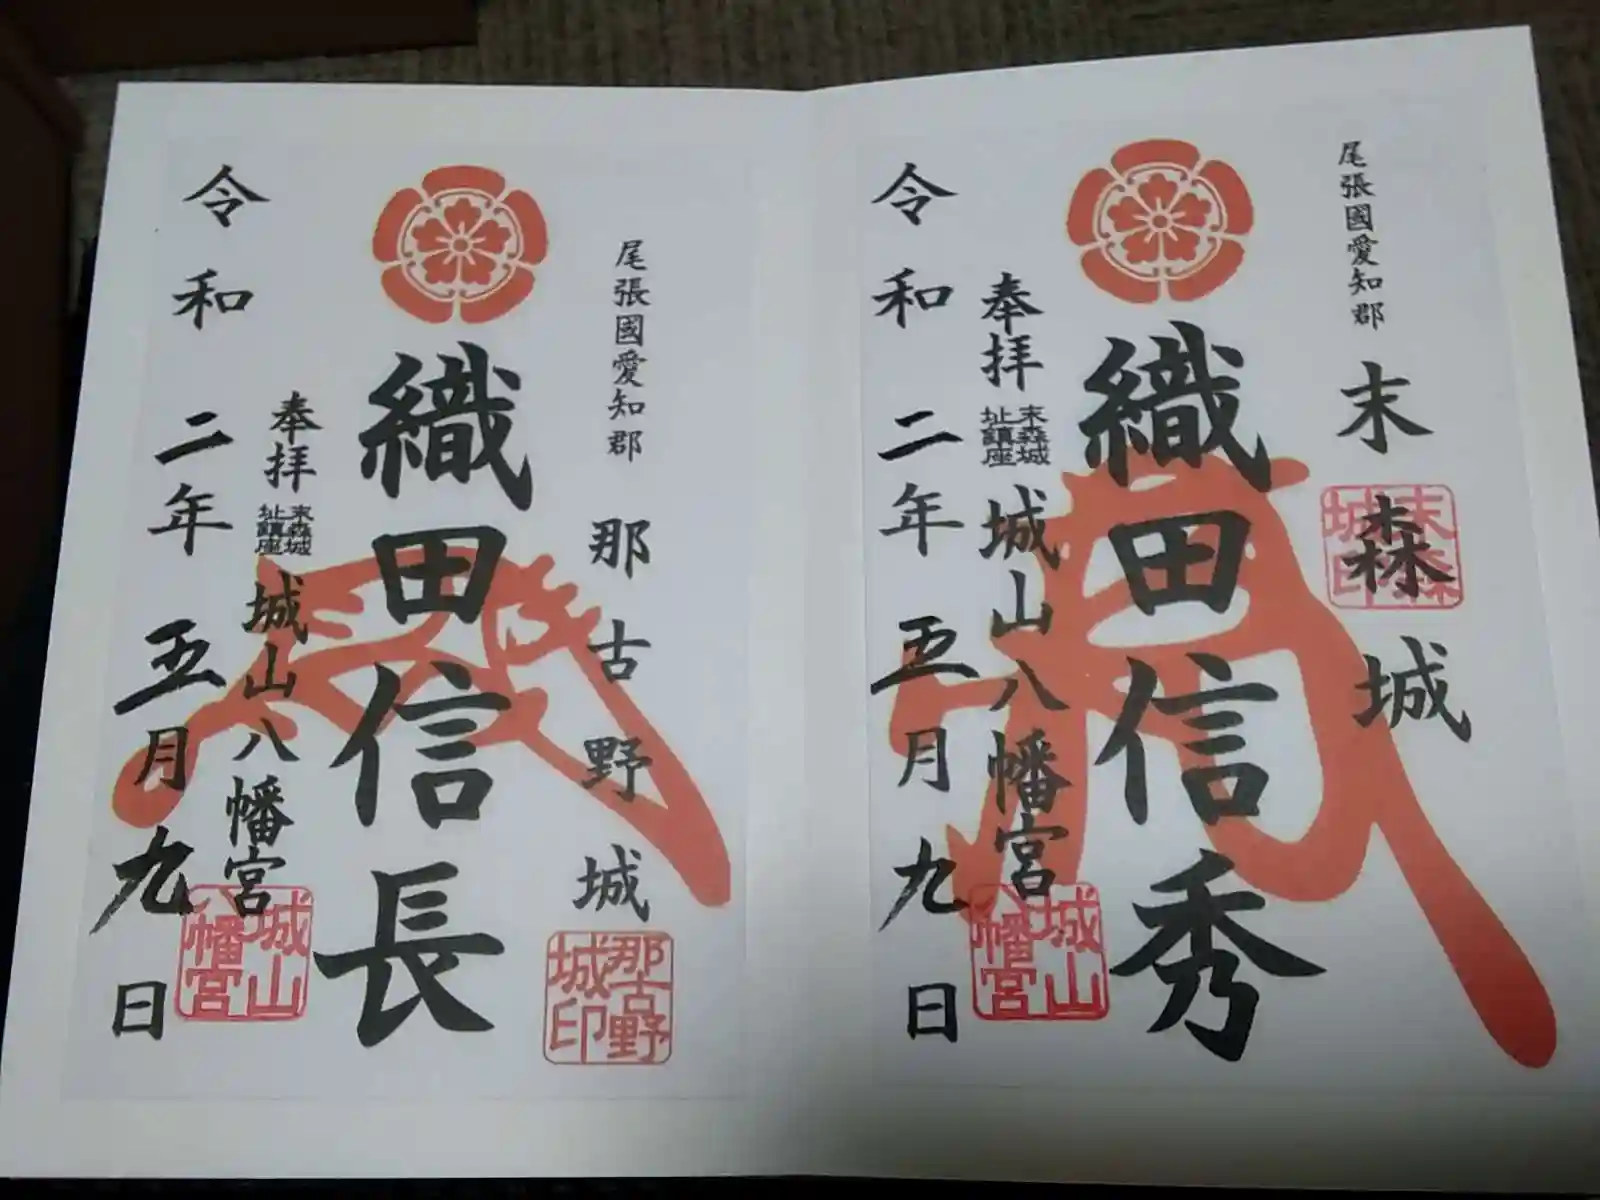 尾張國愛知郡
末森城
末森城印
織田信秀
奉拝
末森城址鎮座
城山八幡宮
城山八幡宮
令和二年五月九日
尾張國愛知郡
那古野城
那古野城印
織田信長
奉拝
末森城址鎮座
城山八幡宮
城山八幡宮
令和二年五月九日